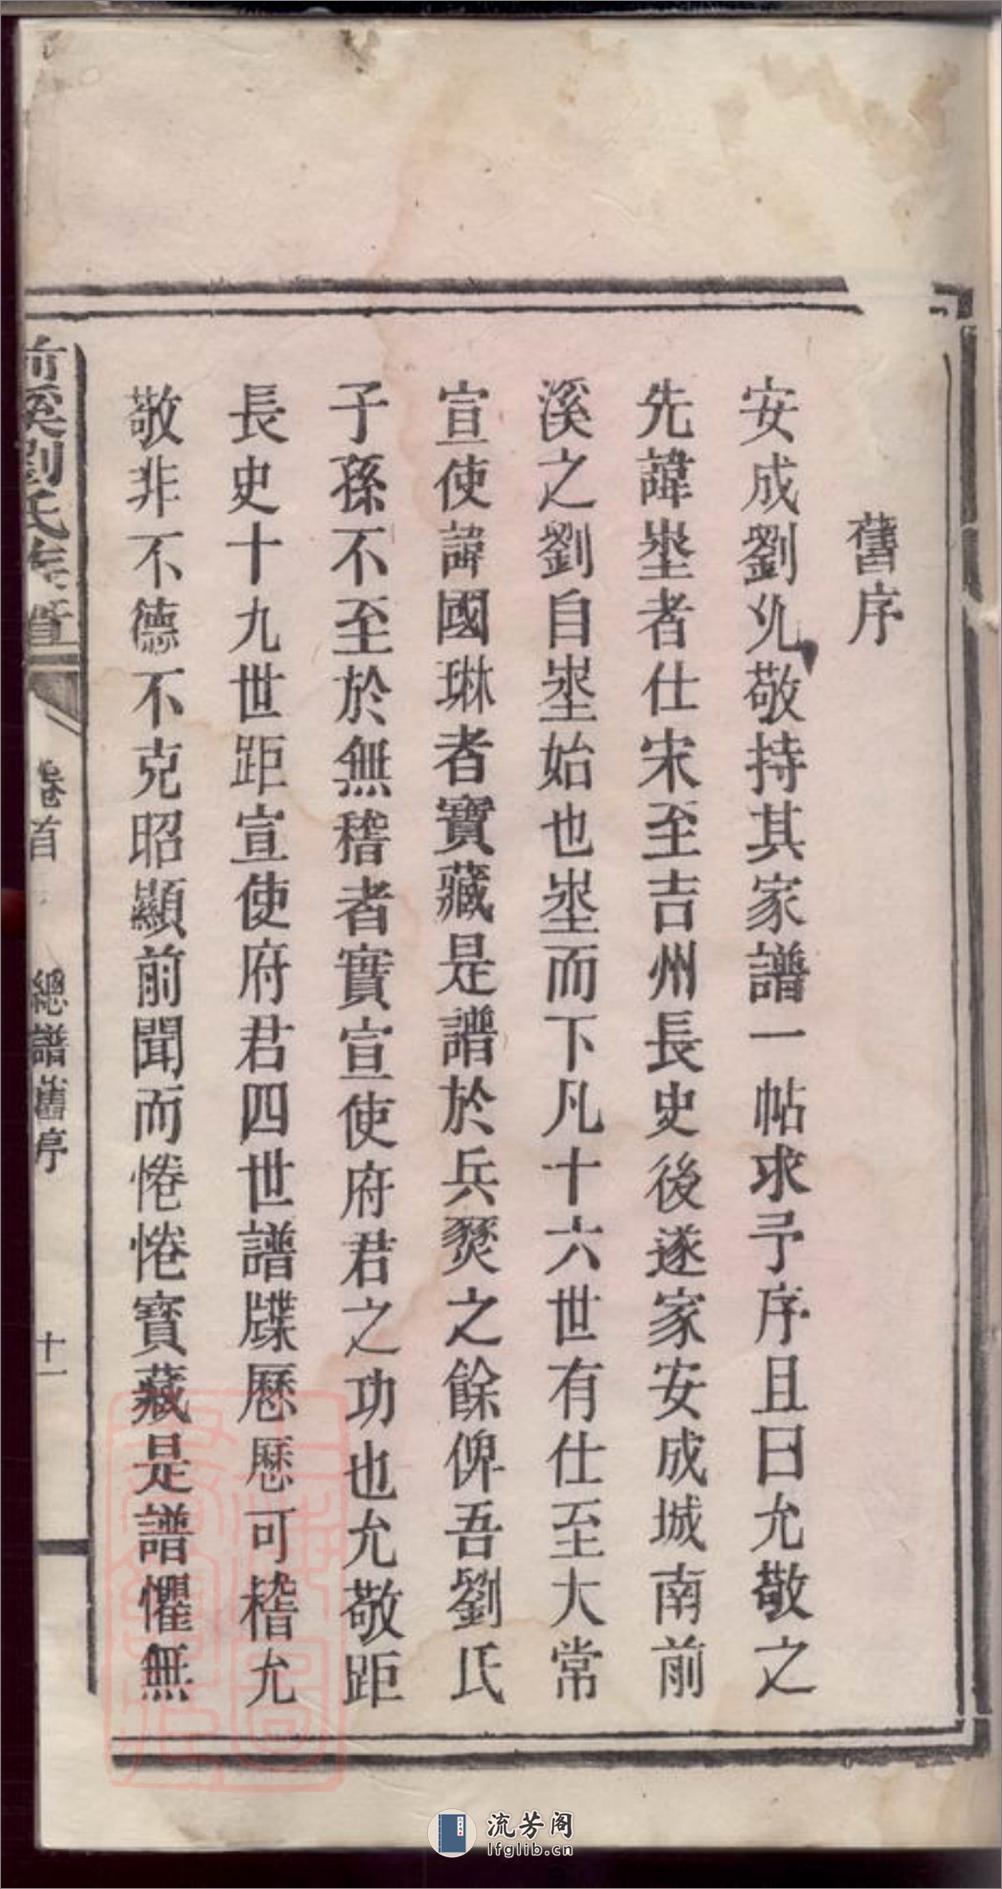 舊序
安成劉允敬持其家譜一帖求予序且曰允敬之
先諱埊者仕宋至吉州長史後遂家安成城南前
溪之劉自埊始也埊而下凡十六世有仕至大常
宣使諱國琳者寶藏是譜於兵燹之餘俾吾劉氏
子孫不至於無稽者實宣使府君之功也允敬距
長史十九世距宣使府君四世譜牒歷歷可稽允
敬非不德不克昭顯前聞而惓惓寶藏是譜懼無
前溪劉氏族譜
卷首
總譜舊序
十一
流芳阁
lfglib.cn